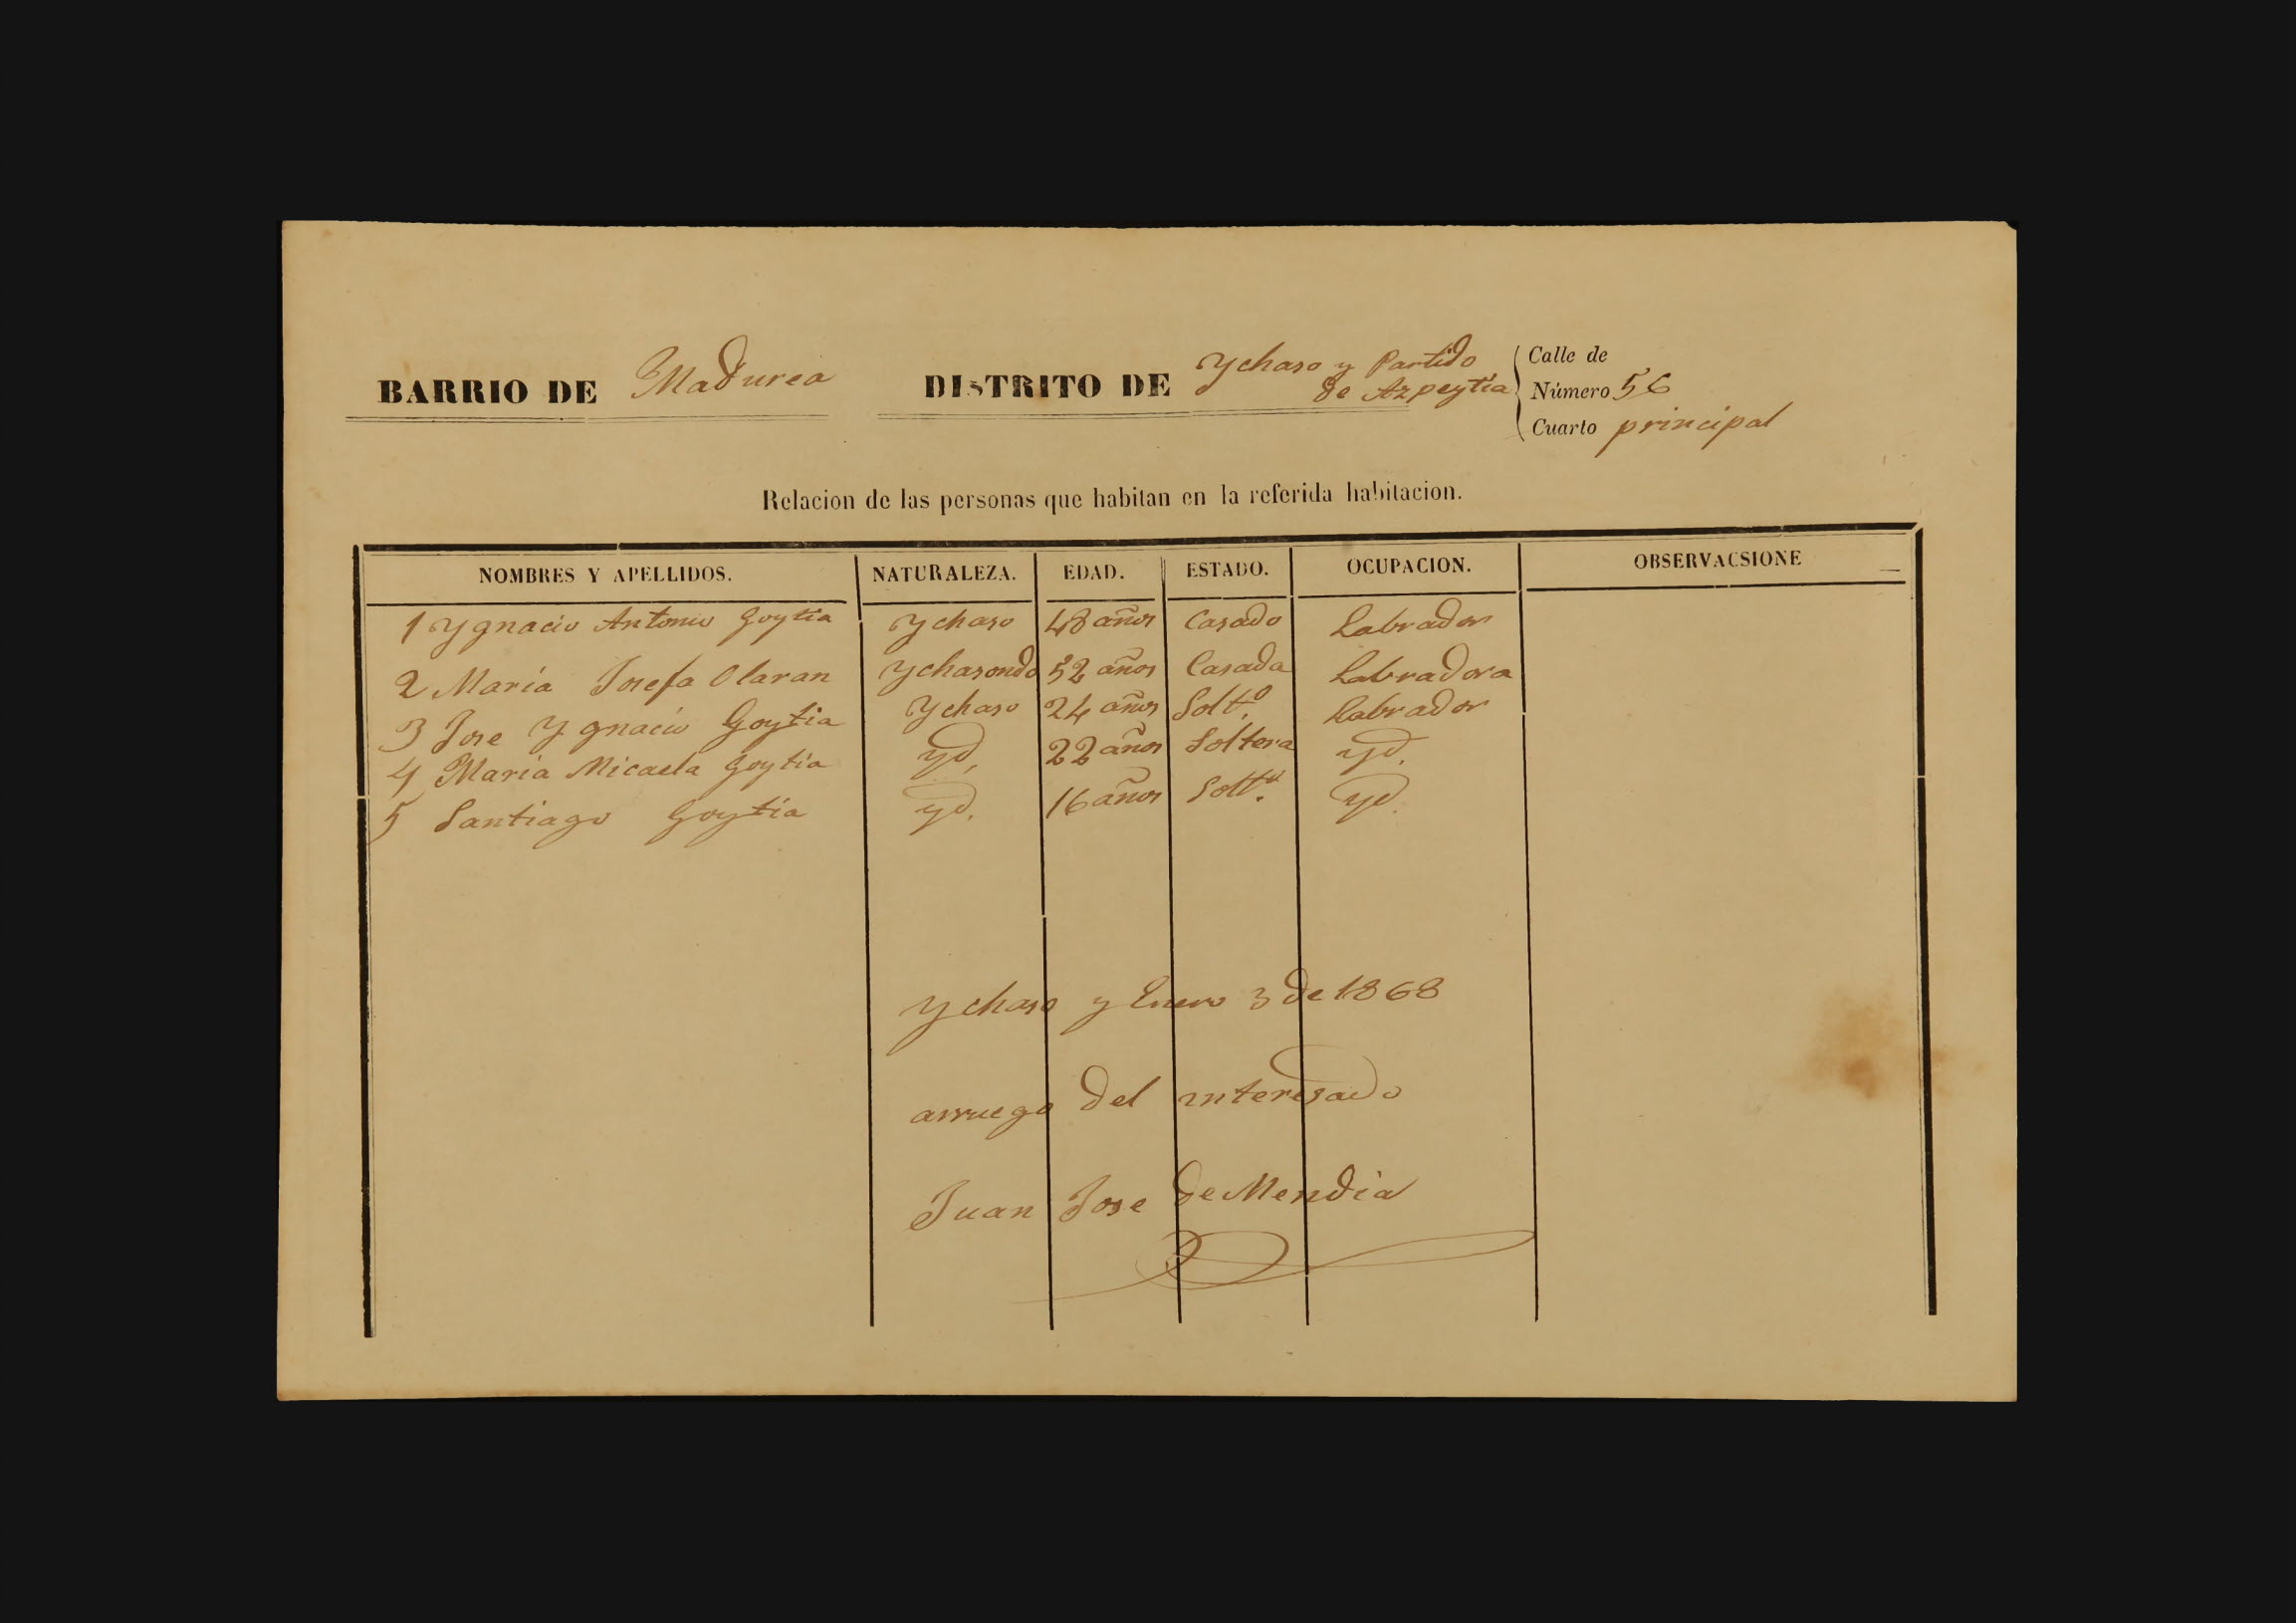 BARRIO DE Madurea DISTRITO DE Ychaso y Partido de Azpeytia
Calle de
Número 56
Cuarto principal
Relacion de las personas que habitan en la referida habitacion.
NOMBRES Y APELLIDOS. NATURALEZA. EDAD. ESTADO. OCUPACION. OBSERVACSIONE
1 Ygnacio Antonio Goytia Ychaso 48 años Casado Labrador
2 Maria Josefa Olaran Ychasondo 52 años Casada Labradora
3 Jose Ygnacio Goytia Ychaso 24 años Solt.º Labrador
4 Maria Micaela Goytia yd. 22 años Soltera yd.
5 Santiago Goytia yd. 16 años Solt.º yd.
Ychaso y Enero 3 de 1868
arruego del interesado
Juan Jose de Mendia